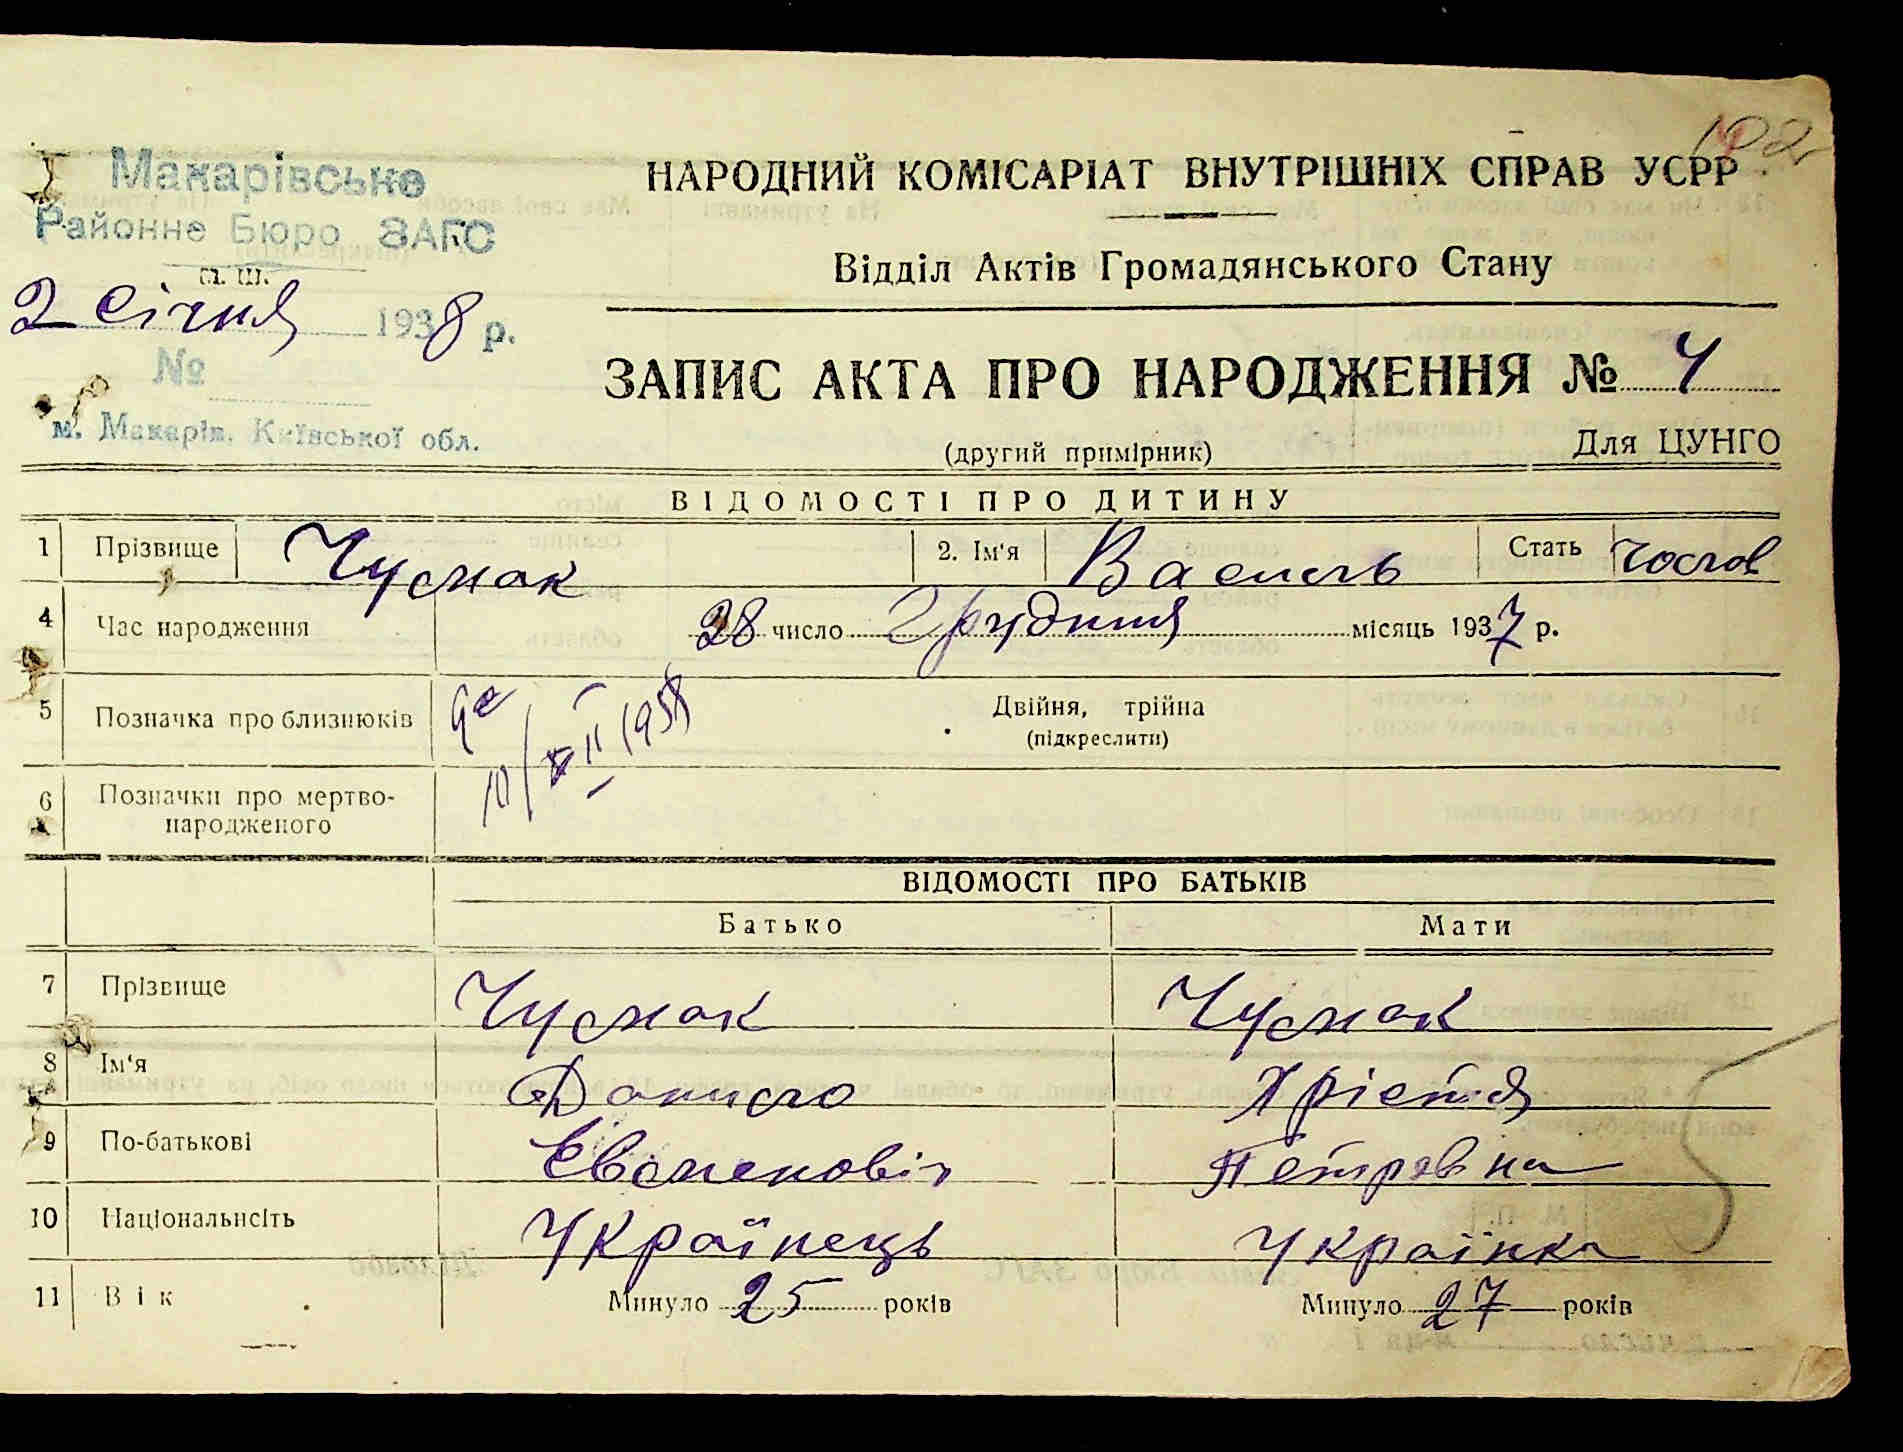 102
Макарівське
Районне Бюро ЗАГС
2 Січня 1938 р.
№
м. Макарів, Київської обл.
НАРОДНИЙ КОМІСАРІАТ ВНУТРІШНІХ СПРАВ УСРР
Відділ Актів Громадянського Стану
ЗАПИС АКТА ПРО НАРОДЖЕННЯ № 4
(другий примірник) Для ЦУНГО
ВІДОМОСТІ ПРО ДИТИНУ
1 Прізвище Чусмак 2. Ім'я Василь Стать чолов
4 Час народження 28 число Грудня місяць 1937 р.
5 Позначка про близнюків Двійня, трійна
(підкреслити)
6 Позначки про мертво-
народженого
ВІДОМОСТІ ПРО БАТЬКІВ
Батько Мати
7 Прізвище Чусмак Чусмак
8 Ім'я Данило Христя
9 По-батькові Євсменовіч Петровна
10 Національнсіть Українець Українка
11 Вік Минуло 25 років Минуло 27 років